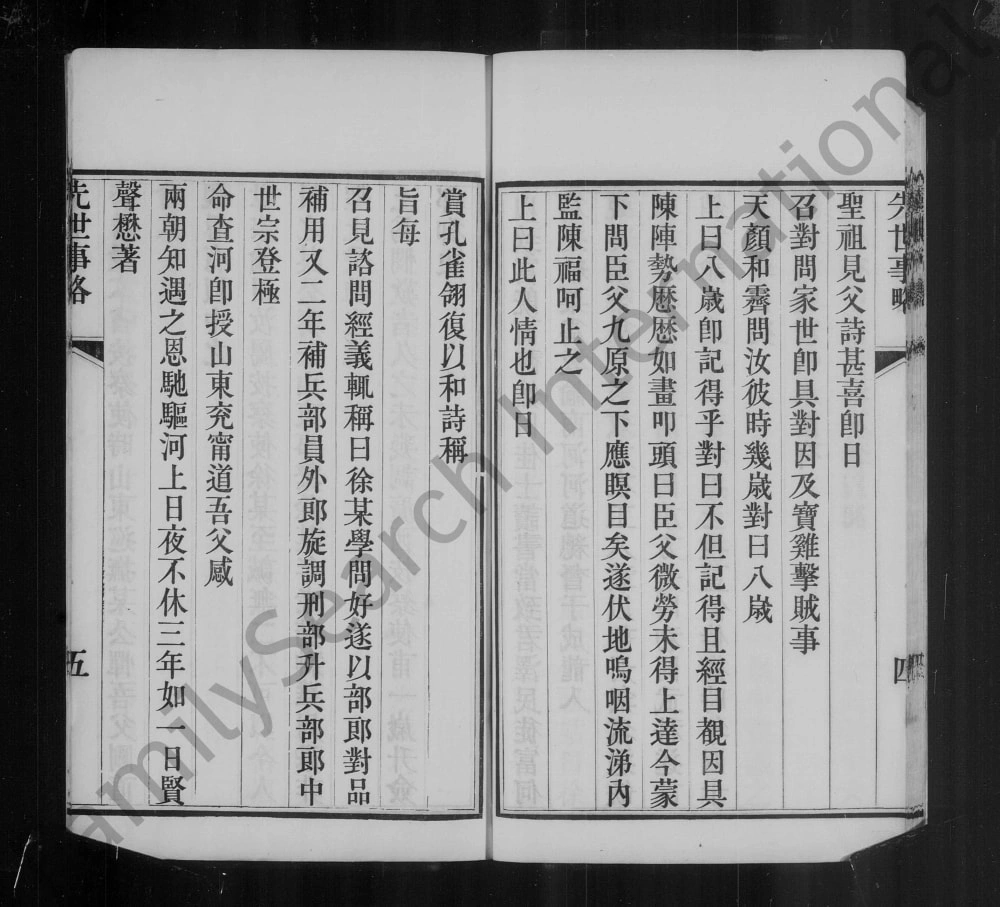 先世事略
四
聖祖見父詩甚喜卽日
召對問家世卽具對因及寶雞擊賊事
天顏和霽問汝彼時幾歲對曰八歲
上曰八歲卽記得乎對曰不但記得且經目覩因具
陳陣勢歷歷如畫叩頭曰臣父微勞未得上達今蒙
下問臣父九原之下應瞑目矣遂伏地嗚咽流涕內
監陳福呵止之
上曰此人情也卽日
賞孔雀翎復以和詩稱
旨每
召見諮問經義輒稱曰徐某學問好遂以部郎對品
補用又二年補兵部員外郎旋調刑部升兵部郎中
世宗登極
命查河卽授山東兖甯道吾父感
兩朝知遇之恩馳驅河上日夜不休三年如一日賢
聲懋著
先世事略
五
FamilySearch International